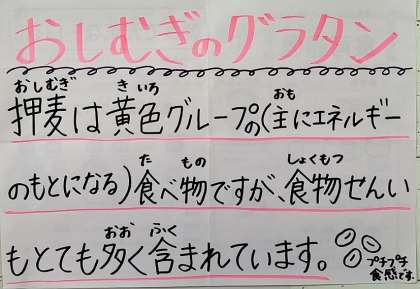 おしむぎのグラタン
おしむぎ き いろ おも
押麦は黄色グループの(主にエネルギー
た もの しょくもつ
のもとになる)食べ物ですが、食物せんい
おお ふく
もとても多く含まれています。
プチプチ
食感です。